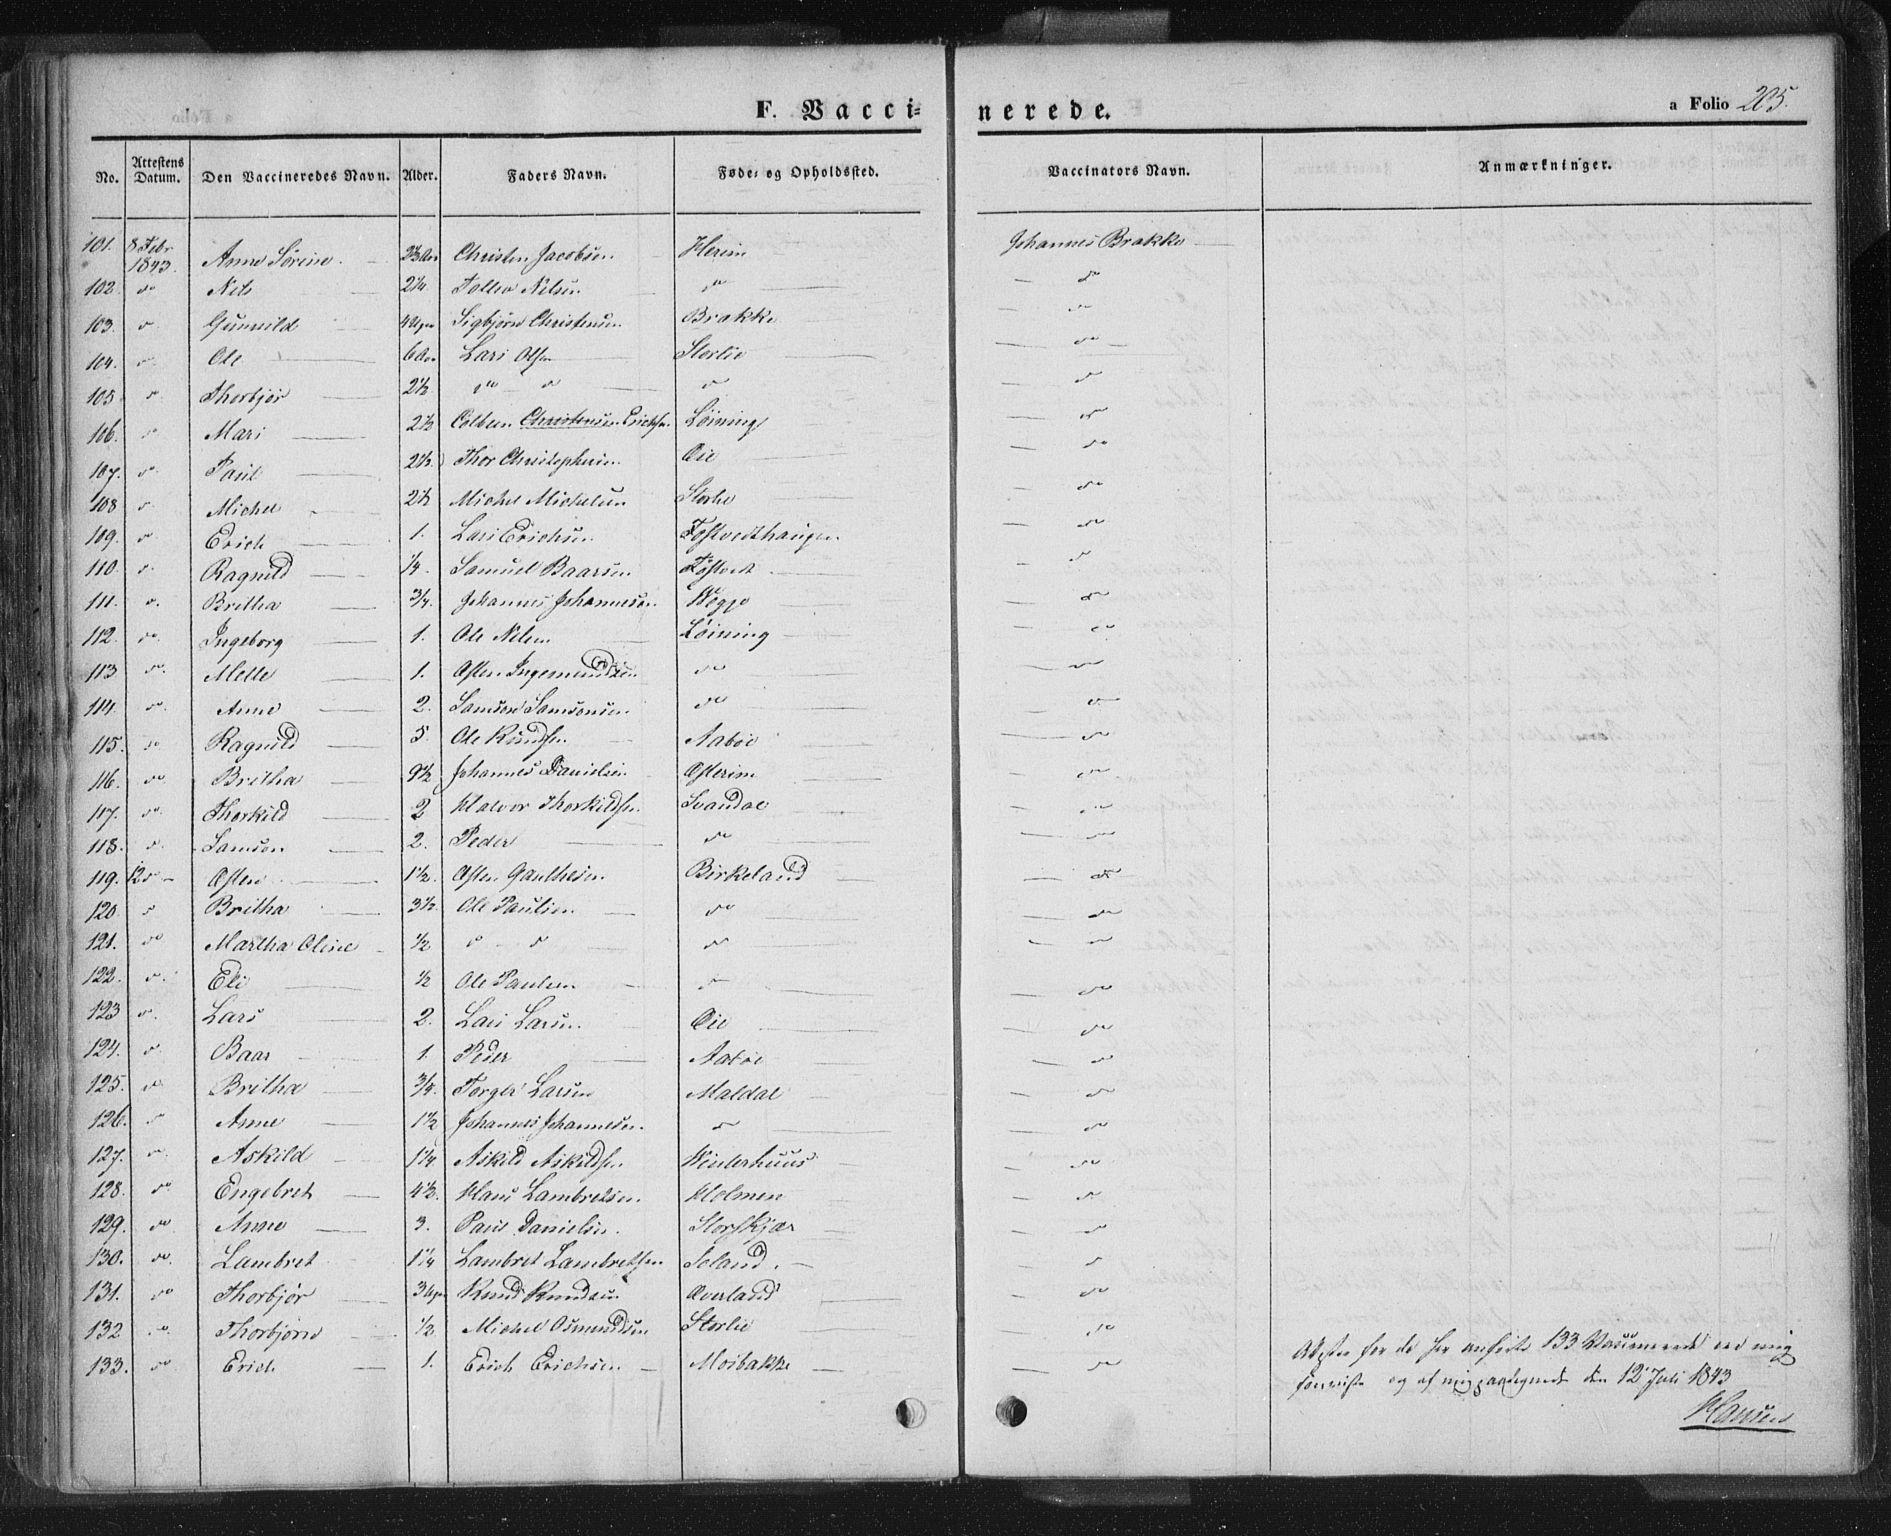 F. Vacci-
nerede.
a Folio 205.
No. Attestens Datum. Den Vaccineredes Navn. Alder. Faders Navn. Føde- og Opholdssted. Vaccinators Navn. Anmærkninger.
101. 8 Febr 1843. Anne Sørine 2½ Aar Christen Jacobsen Herim Johannes Brakke
102. do Nils 2¼ Tollev Nilsen do do
103. do Gunvild 4 Uger Sigbjørn Christensen Brakke do
104. do Ole 6 Aar Lars Olsen Storlie do
105 do Thorbjør 2½ do do do do
106. do Mari 2½ Colben Christensen Erichsen Løining do
107. do Paul 2½ Thor Christophersen Øie do
108 do Michel 2½ Michel Michelsen Storlie do
109. do Erich 1. Lars Erichsen Tostvedthaugen do
110. do Ragnild ¼. Samuel Baarsen Tøstvedt do
111. do Britha ¾. Johannes Johannesen do
112. do Ingeborg 1. Ole Nilsen Løining do
113 do Mette 1. Østen Ingemundsen do do
114. do Anne 2. Samson Samsonsen do do
115. do Ragnild 5 Ole Knudsen Aabøe do
116. do Britha 9½ Johannes Danielsen Østerim do
117. do Thorkild 2 Halvor Thorkildsen Svandal do
118. do Samson 2. Peder do do
119. 12 do Østen 1½. Østen Gauthesen Birkeland do
120 do Britha 3½ Ole Paulsen do do
121. do Martha Oline ½ do do do do
122. do Eli ½ Ole Paulsen do do
123 do Lars 2. Lars Larsen Øie do
124. do Baar 1. Peder Aabøe do
125. do Britha ¾. Torger Larsen Maldal do
126. do Anne 1½ Johannes Johannesen do do
127. do Askild 1¼ Askild Askildsen Winterhuus do
128. do Engebret 4½. Hans Lambretsen Holmen do
129. do Anne 3. Paul Danielsen Storskjær do
130. do Lambret 1¼ Lambret Lambretsen Seland do
131. do Thorbjør 3 Uger Knud Knudsen Øverland do
132 do Thorbjørn ½ Michel Osmundsen Storlie do
133. do Erich 1. Erich Erichsen Moibakke do
Attester for de her anførte 133 Vaccinerede ere mig
foreviste og af mig paategnede den 12 Juli 1843
Hansen